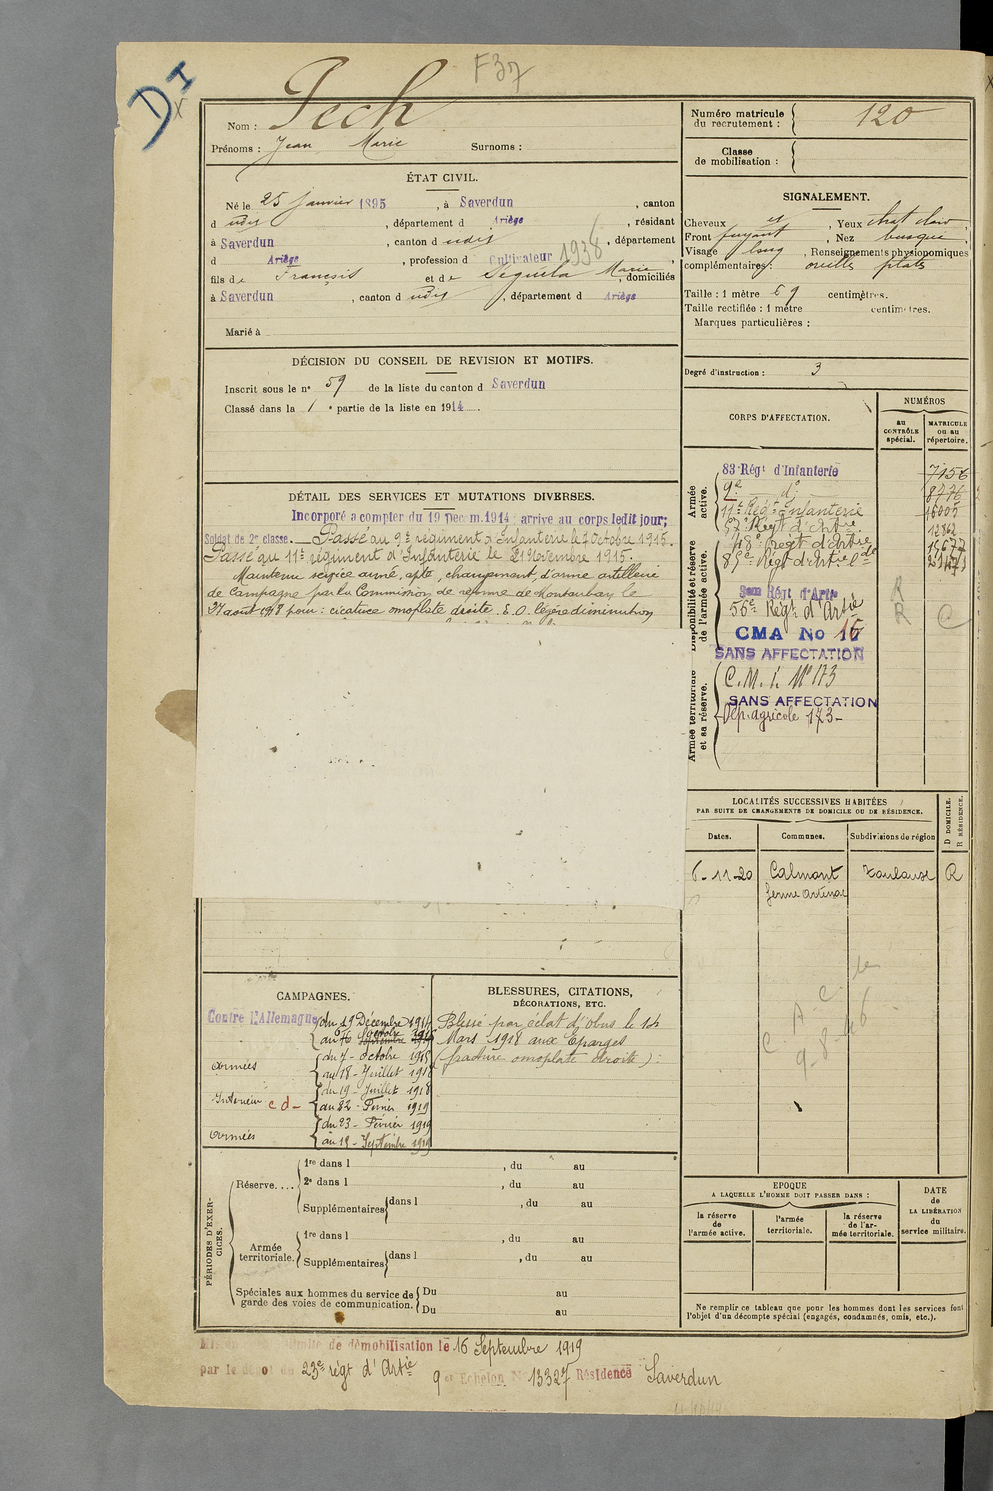 D I
F 37
Nom : Pech
Prénoms : Jean Marie Surnoms :
Numéro matricule du recrutement : 120
Classe de mobilisation :
ÉTAT CIVIL.
Né le 25 Janvier 1895, à Saverdun, canton
d udit, département d Ariège, résidant
à Saverdun, canton d udit, département
d Ariège, profession d Cultivateur 1938
fils de François et de Séguéla Marie, domiciliés
à Saverdun, canton d udit, département d Ariège
Marié à
SIGNALEMENT.
Cheveux, Yeux chat clair,
Front fuyant, Nez busqué,
Visage long, Renseignements physiopomiques
complémentaires : oreilles plates
Taille : 1 mètre 69 centimètres.
Taille rectifiée : 1 mètre centimètres.
Marques particulières :
Degré d'instruction : 3
DÉCISION DU CONSEIL DE REVISION ET MOTIFS.
Inscrit sous le n° 59 de la liste du canton d Saverdun
Classé dans la 1e partie de la liste en 1914.
DÉTAIL DES SERVICES ET MUTATIONS DIVERSES.
Incorporé a compter du 19 Decem. 1914 ; arrive au corps ledit jour;
Soldat de 2e classe. Passé au 9e régiment d'Infanterie le 7 Octobre 1915.
Passé au 11e régiment d'Infanterie le 21 Novembre 1915.
Maintenu service armé, apte, changement d'arme artillerie
de Campagne par la Commission de réforme de Montauban le
27 aout 1918 pour : cicatrice omoplate droite. E.O. légère diminution
CORPS D'AFFECTATION.
NUMÉROS
au CONTRÔLE spécial.
MATRICULE ou au répertoire.
Armée active.
83e Régt d'Infanterie 7156
9e d° 8776
11e Régt Infanterie 16005
57e Régt d'Artie 12862
Disponibilité et réserve de l'armée active.
18e Regt d'Artie
R
56e Régt d'Artie R C
CMA No 16
SANS AFFECTATION
Armée territoriale et sa réserve.
C.M.A. N° 173
SANS AFFECTATION
Dép. agricole 173
LOCALITÉS SUCCESSIVES HABITÉES
PAR SUITE DE CHANGEMENTS DE DOMICILE OU DE RÉSIDENCE.
D DOMICILE. R RÉSIDENCE.
Dates. Communes. Subdivisions de région
6-11-20 Calmont Toulouse R
ferme
A C
C 9.8.46
CAMPAGNES.
Contre l'Allemagne du 19 Décembre 1914
Armées du 7 - Octobre 1915
au 18 - Juillet 1918
Intérieur c d - du 19 - Juillet 1918
au 22 - Février 1919
Armées du 23 - Février 1919
au 12 - Septembre 1919
BLESSURES, CITATIONS,
DÉCORATIONS, ETC.
Blessé par éclat d'obus le 14
Mars 1918 aux Eparges
(fracture omoplate droite) :
PÉRIODES D'EXERCICES.
Réserve.... 1re dans l , du au
2e dans l , du au
Supplémentaires dans l , du au
Armée territoriale. 1re dans l , du au
Supplémentaires dans l , du au
Spéciales aux hommes du service de Du au
garde des voies de communication. Du au
EPOQUE
A LAQUELLE L'HOMME DOIT PASSER DANS :
la réserve de l'armée active.
l'armée territoriale.
la réserve de l'armée territoriale.
DATE de LA LIBÉRATION du service militaire.
Ne remplir ce tableau que pour les hommes dont les services font
l'objet d'un décompte spécial (engagés, condamnés, omis, etc.).
de démobilisation le 16 Septembre 1919
par le dépot du 23e régt d'Artie 9e Echelon N° 13327 Résidence Saverdun